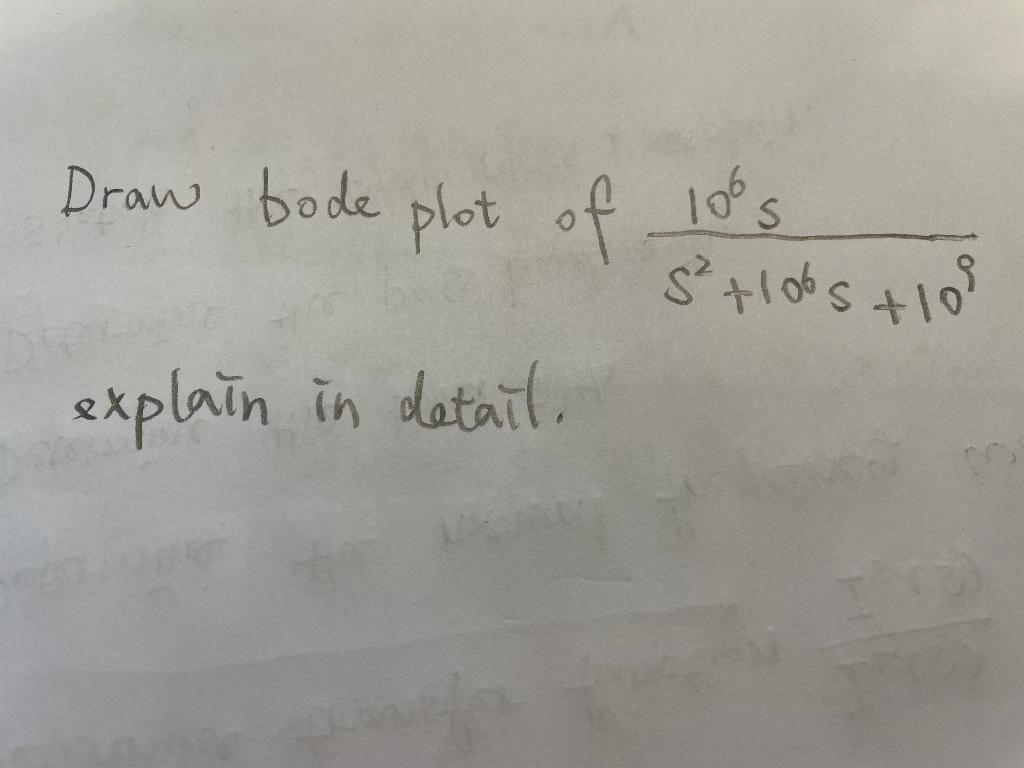 Draw bode plot of 10⁶s / s²+10⁶s+10⁹
explain in detail.